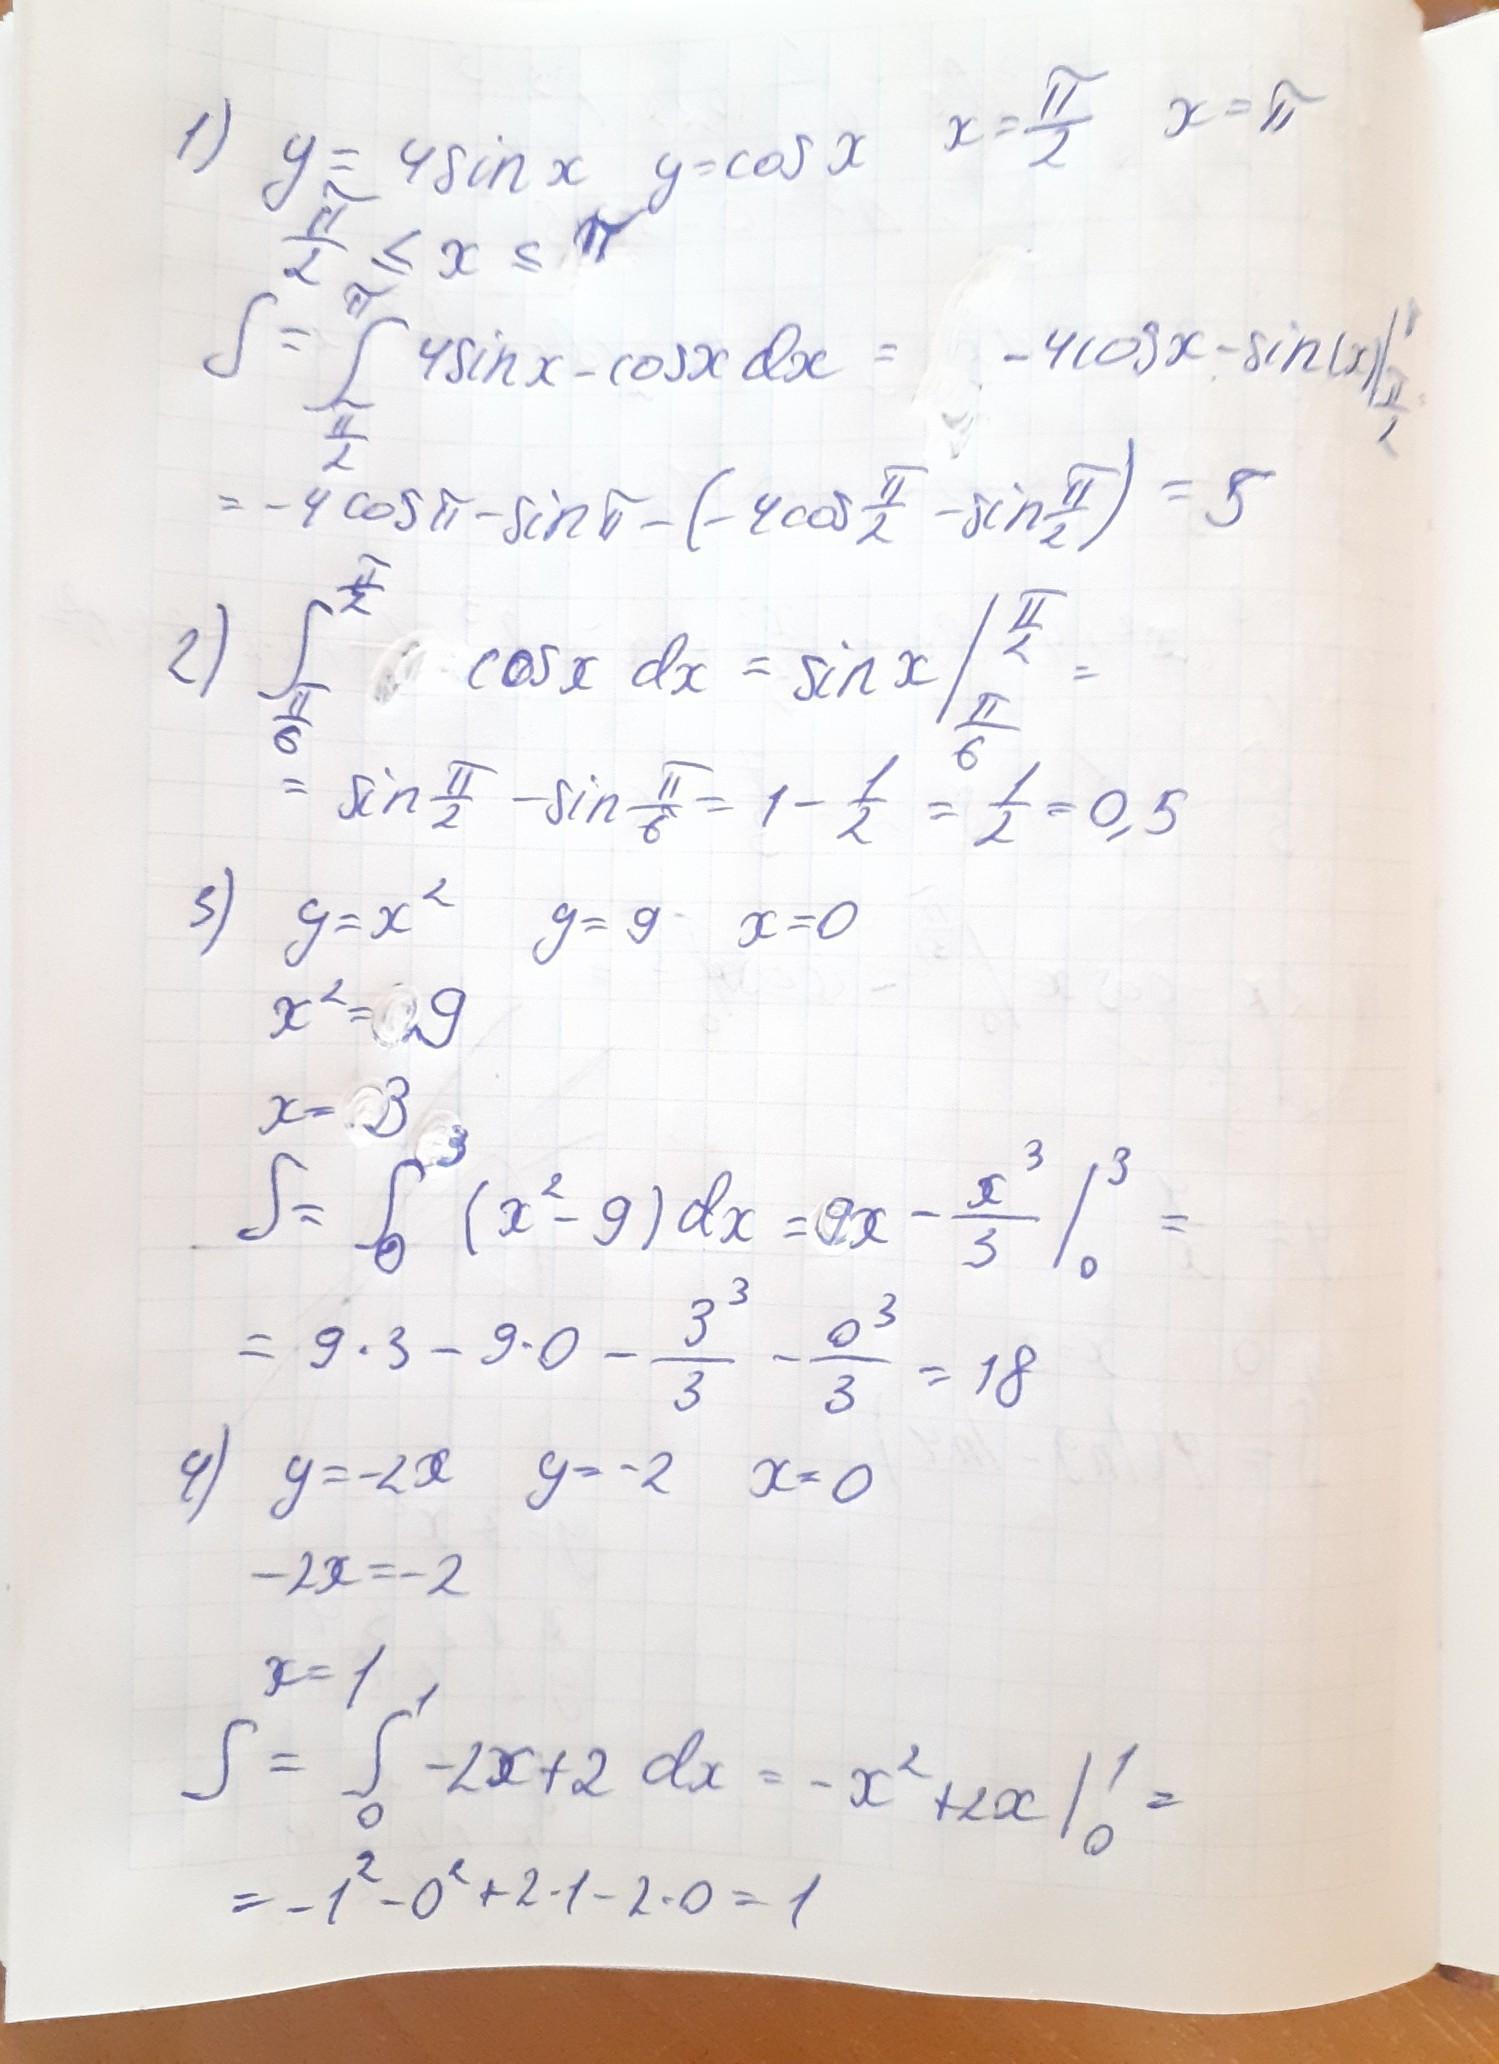 1) y = 4sin x y = cos x x = π/2 x = π
π/2 ≤ x ≤ π
S = ∫_{π/2}^{π} 4sin x - cos x dx = -4cos x - sin(x)|_{π/2}
= -4cos π - sin π - (-4cos π/2 - sin π/2) = 5
2) ∫_{π/6}^{π/2} cos x dx = sin x |_{π/6}^{π/2} =
= sin π/2 - sin π/6 = 1 - 1/2 = 1/2 = 0,5
3) y = x² y = 9 x = 0
x² = 9
x = 3
S = ∫_0^3 (x² - 9) dx = 9x - x³/3 |_0^3 =
= 9·3 - 9·0 - 3³/3 - 0³/3 = 18
4) y = -2x y = -2 x = 0
-2x = -2
x = 1
S = ∫_0^1 -2x + 2 dx = -x² + 2x |_0^1 =
= -1² - 0² + 2·1 - 2·0 = 1